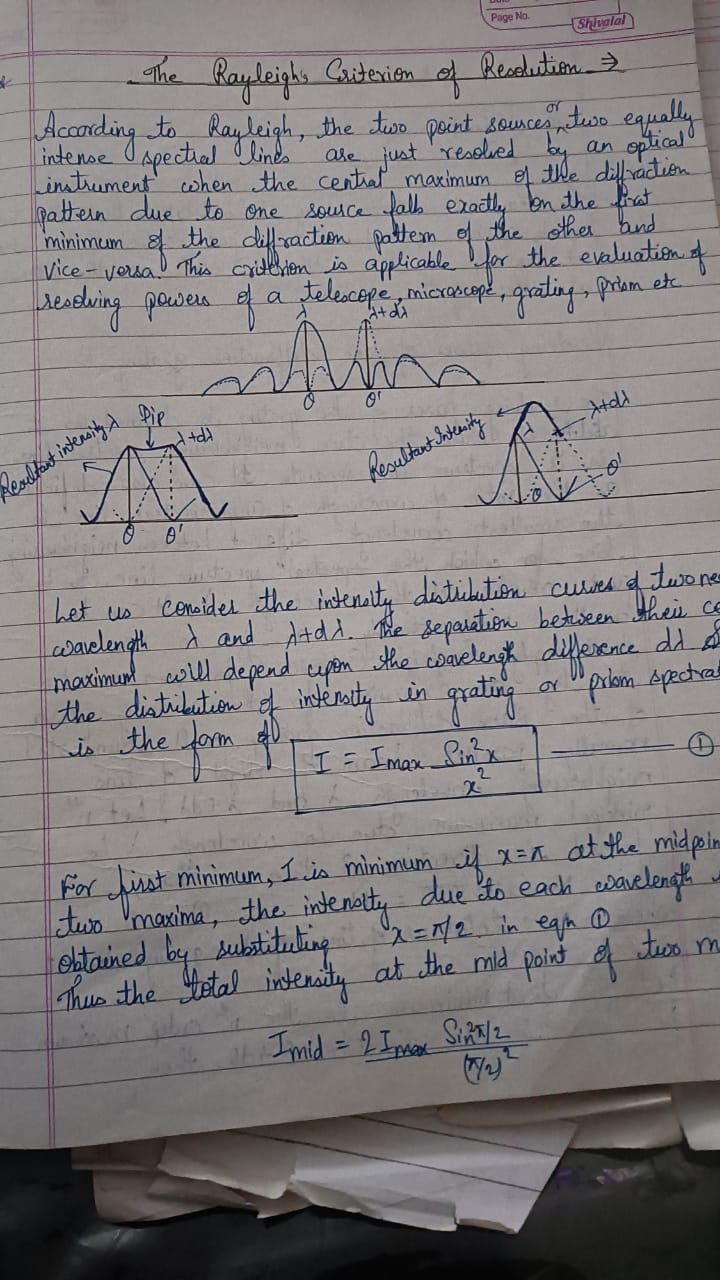 Page No.
Shivalal
The Rayleigh's Criterion of Resolution ⇒
According to Rayleigh, the two point sources or two equally
intense spectral lines are just resolved by an optical
instrument when the central maximum of the diffraction
pattern due to one source falls exactly on the first
minimum of the diffraction pattern of the other and
vice-versa. This criterion is applicable for the evaluation of
resolving powers of a telescope, microscope, grating, prism etc
λ λ+dλ
θ θ'
Resultant intensity λ Dip λ+dλ
θ θ'
Resultant Intensity λ λ+dλ
θ θ'
Let us consider the intensity distribution curves of two
wavelength λ and λ+dλ. The separation between their
maximum will depend upon the wavelength difference dλ
the distribution of intensity in grating or prism
is the form of
I = Imax Sin²x / x² ①
For first minimum, I is minimum if x=π at the
two maxima, the intensity due to each wavelength
obtained by substituting x = π/2 in eqn ①
Thus the total intensity at the mid point of two
Imid = 2Imax Sin²π/2 / (π/2)²